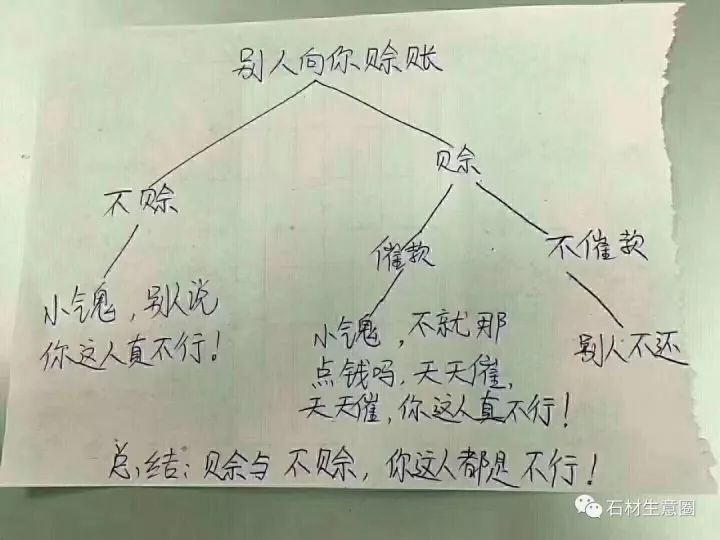 别人向你赊账
赊
不赊
催款
不催款
小气鬼，别人说
你这人真不行！
小气鬼，不就那
点钱吗，天天催，
天天催，你这人真不行！
别人不还
总结：赊与不赊，你这人都是不行！
石材生意圈